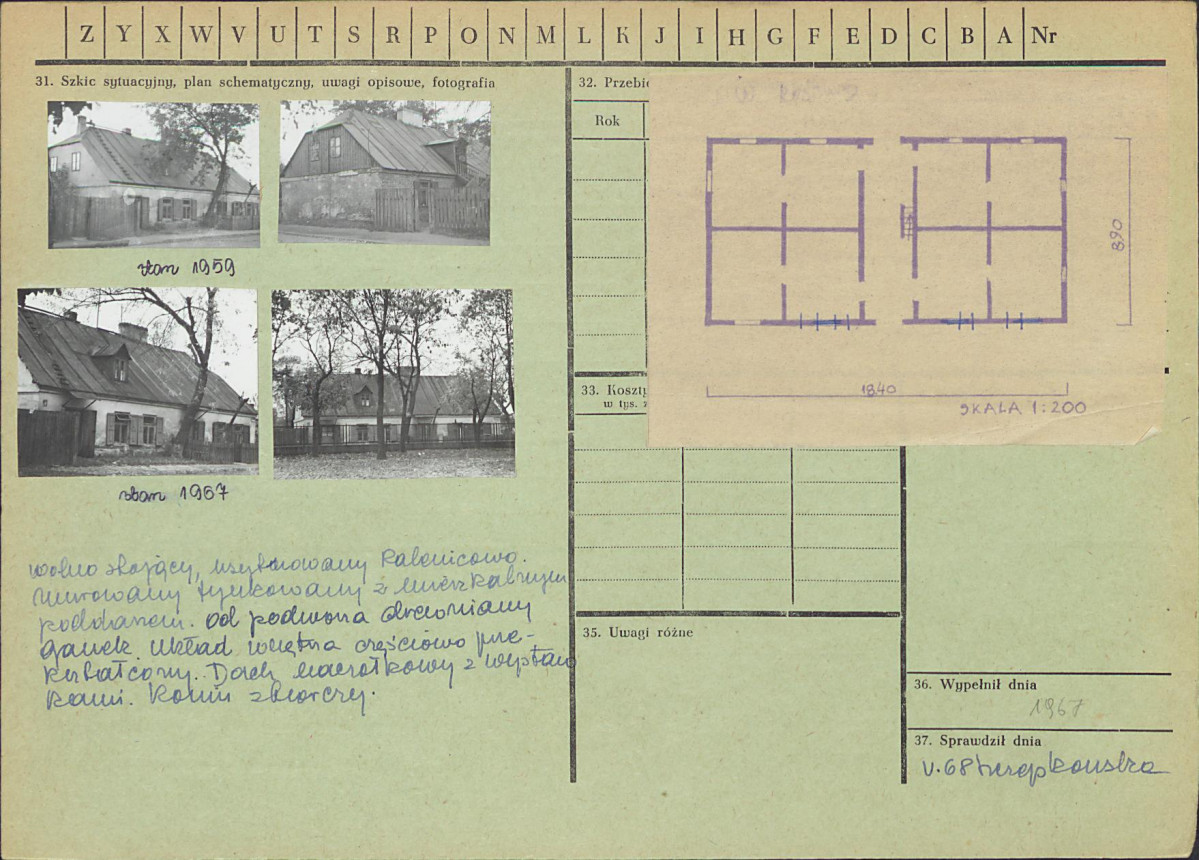 Z Y X W V U T S R P O N M L K J I H G F E D C B A Nr
31. Szkic sytuacyjny, plan schematyczny, uwagi opisowe, fotografia
stan 1959
stan 1967
wolno stojący, usytuowany kalenicowo.
Murowany tynkowany z mieszkalnym
poddaszem. Od podwórza drewniany
ganek. Układ wnętrza częściowo prze-
kształcony. Dach naczółkowy z wystaw
kami. Komin zbiorczy.
32. Przebie
Rok
33. Koszty
w tys. z
890
1840
SKALA 1:200
35. Uwagi różne
36. Wypełnił dnia
1967
37. Sprawdził dnia
V.68